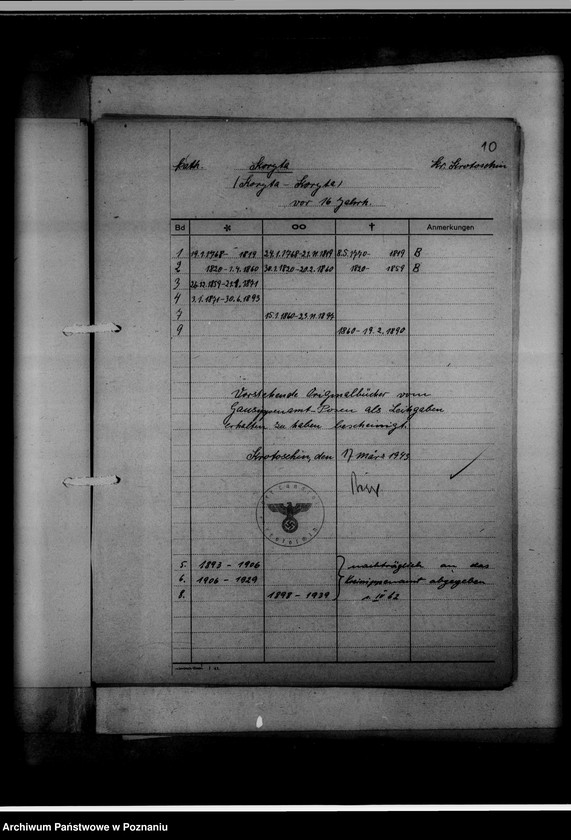 10
kath. Koryta Kr. Krotoschin
(Koryta - Koryta)
vor 16 Jahrh.
Bd * ∞ † Anmerkungen
1 19.1.1768- 1819 24.1.1768-21.11.1819 8.5.1770- 1819 B
2 1820-1.4.1860 30.1.1820-20.2.1860 1820- 1859 B
3 26.12.1859-21.8.1871
4 3.1.1871-30.6.1893
7 15.1.1860-23.11.1897
9 1860-19.2.1890
Vorstehende Originalbücher vom
Gausippenamt Posen als Leihgaben
erhalten zu haben bescheinigt.
Krotoschin, den 17 März 1943
5. 1893 - 1906 nachträglich an das
6. 1906 - 1929 Kreissippenamt abgegeben
8. 1898 - 1939
Archiwum Państwowe w Poznaniu